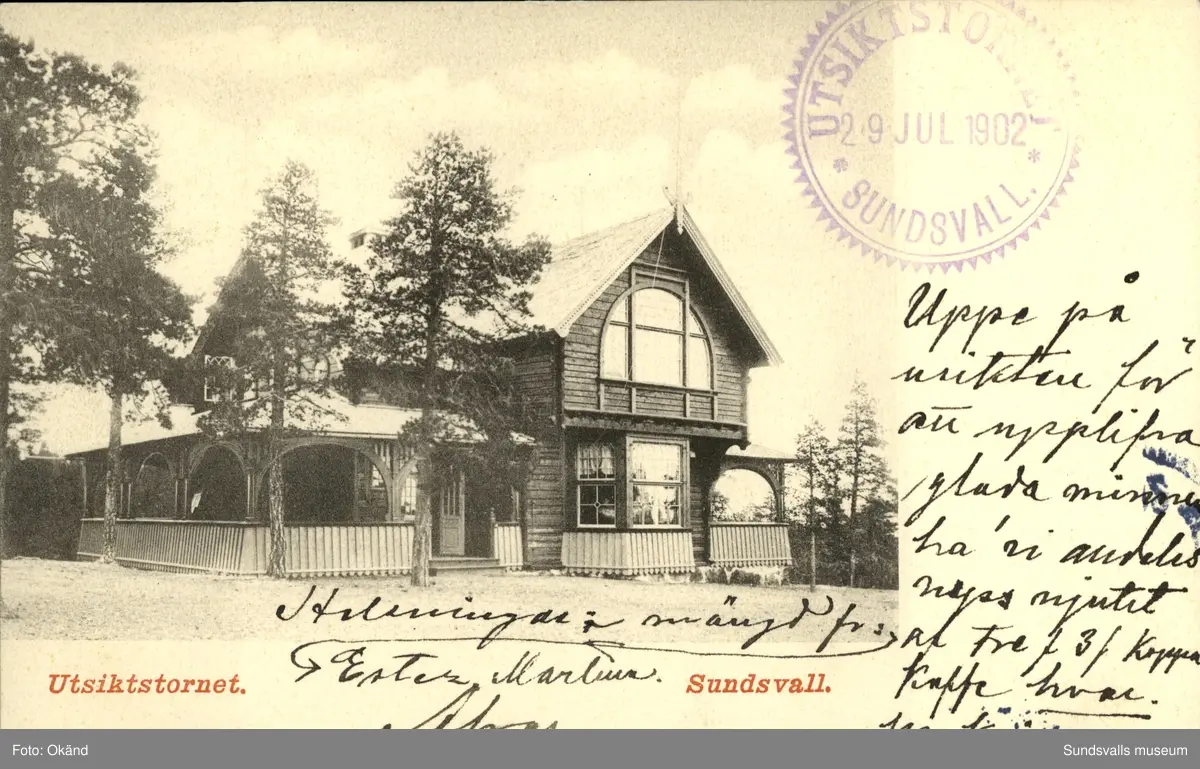 UTSIKTSTORNET
29 JUL 1902
* SUNDSVALL. *
Uppe på
utsikten för
att upplifva
glada minnen
ha' vi alldeles
nyss njutit
af tre / 3 / Koppar
Kaffe hvar.
Helsningar i mängd fr:
Ester, Martina.
Utsiktstornet.
Sundsvall.
Foto: Okänd
Sundsvalls museum